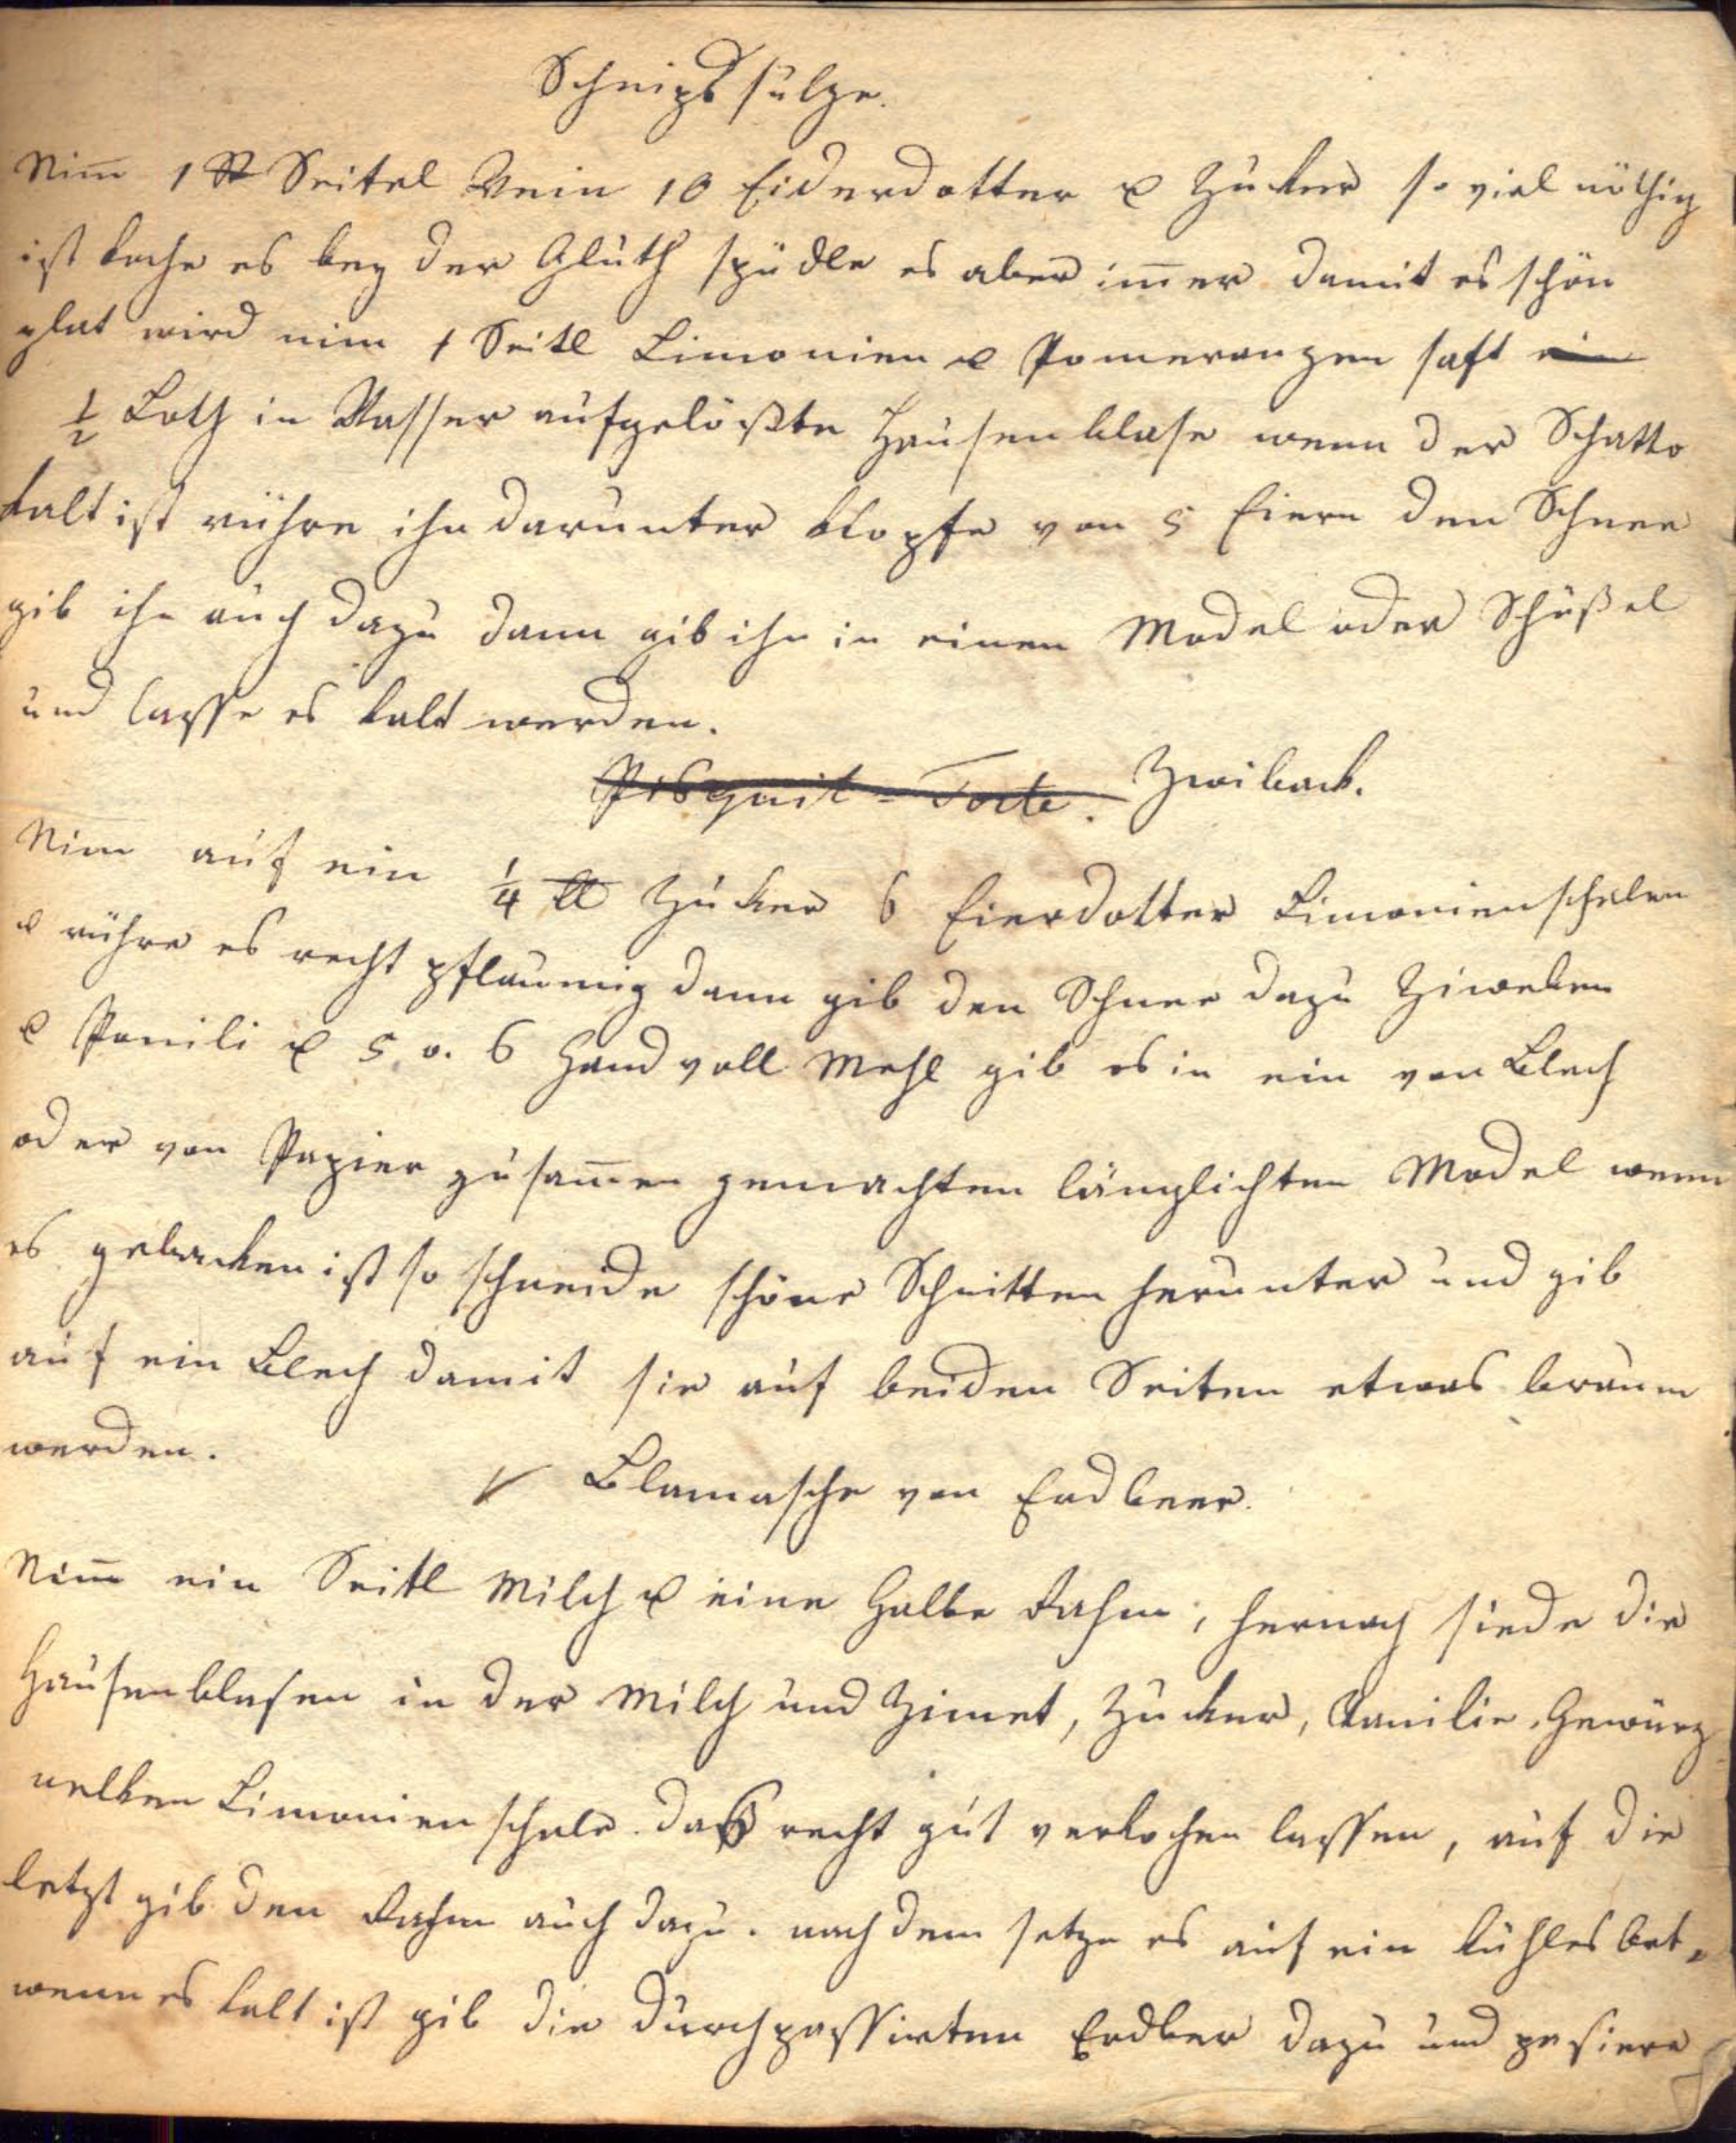 Schnips sulze.
Nim̅ 1 St Seitel Wein 10 Eiderdotter u Zucker so viel nöthig
ist koche es bey der Gluth spüdle es aber im̅er damit es schön
glat wird nim 1 Seitl Limonien u Pomeranzen saft ein
½ Loth in Wasser aufgelößte Hausenblase wenn der Schatto
kalt ist rühre ihn darunter klopfe von 5 Eiern den Schnee
gib ihn auch dazu dann gib ihn in einen Model oder Schüßel
und lasse es kalt werden.
Pisquit-Torte. Zwiback.
Nim̅ auf ein ¼ ℔ Zucker 6 Eierdotter Limonienschalen
u rühre es recht pflaumig dann gib den Schnee dazu Ziweben
u Vanili u 5 o. 6 Hand voll Mehl gib es in ein von Blech
oder von Papier zusam̅en gemachten länglichten Model wenn
es gebacken ist so schneide schöne Schnitten herunter und gib
auf ein Blech damit sie auf beiden Seiten etwas braun
werden.
Blamasche von Erdbeer.
Nim̅ ein Seitl Milch u eine Halbe Rahm, hernach siede die
Hausenblasen in der Milch und Zimet, Zucker, Vanilie, Gewürz
nelken Limonien schale. daß recht gut verkochen lassen, auf die
letzt gib den Rahm auch dazu. nach dem setze es auf ein kühles Ort,
wenn es kalt ist gib die durchpassirten Erdber dazu und pasiere